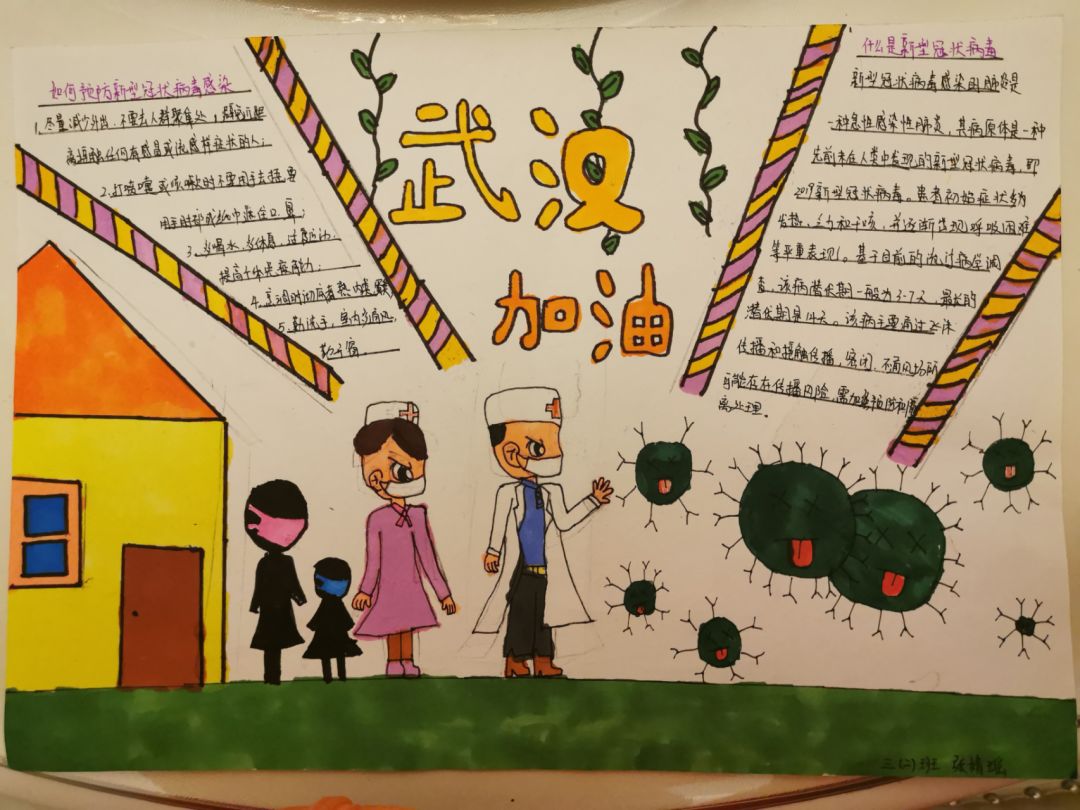 如何预防新型冠状病毒感染
1、尽量减少外出,不要去人群聚集处,
任何有感冒或流感样症状的人;
2、打喷嚏或咳嗽时不要用手去捂,要
用手肘部或纸巾遮住口鼻;
3、多喝水,多休息,
提高
4、
5、勤洗手,室内多通风,
武汉
加油
什么是新型冠状病毒
新型冠状病毒感染的肺炎是
一种急性感染性肺炎,其病原体是一种
先前未在人类中发现的新型冠状病毒,即
2019新型冠状病毒。患者初始症状多为
发热、乏力和干咳,并逐渐出现呼吸困难
等严重表现。基于目前的流行病学调
查,该病潜伏期一般为3-7天,最长的
潜伏期是14天。该病主要通过飞沫
传播和接触传播,密闭、不通风场所
可能存在传播风险,需加强预防和隔
离处理。
三(二)班 张婧瑶